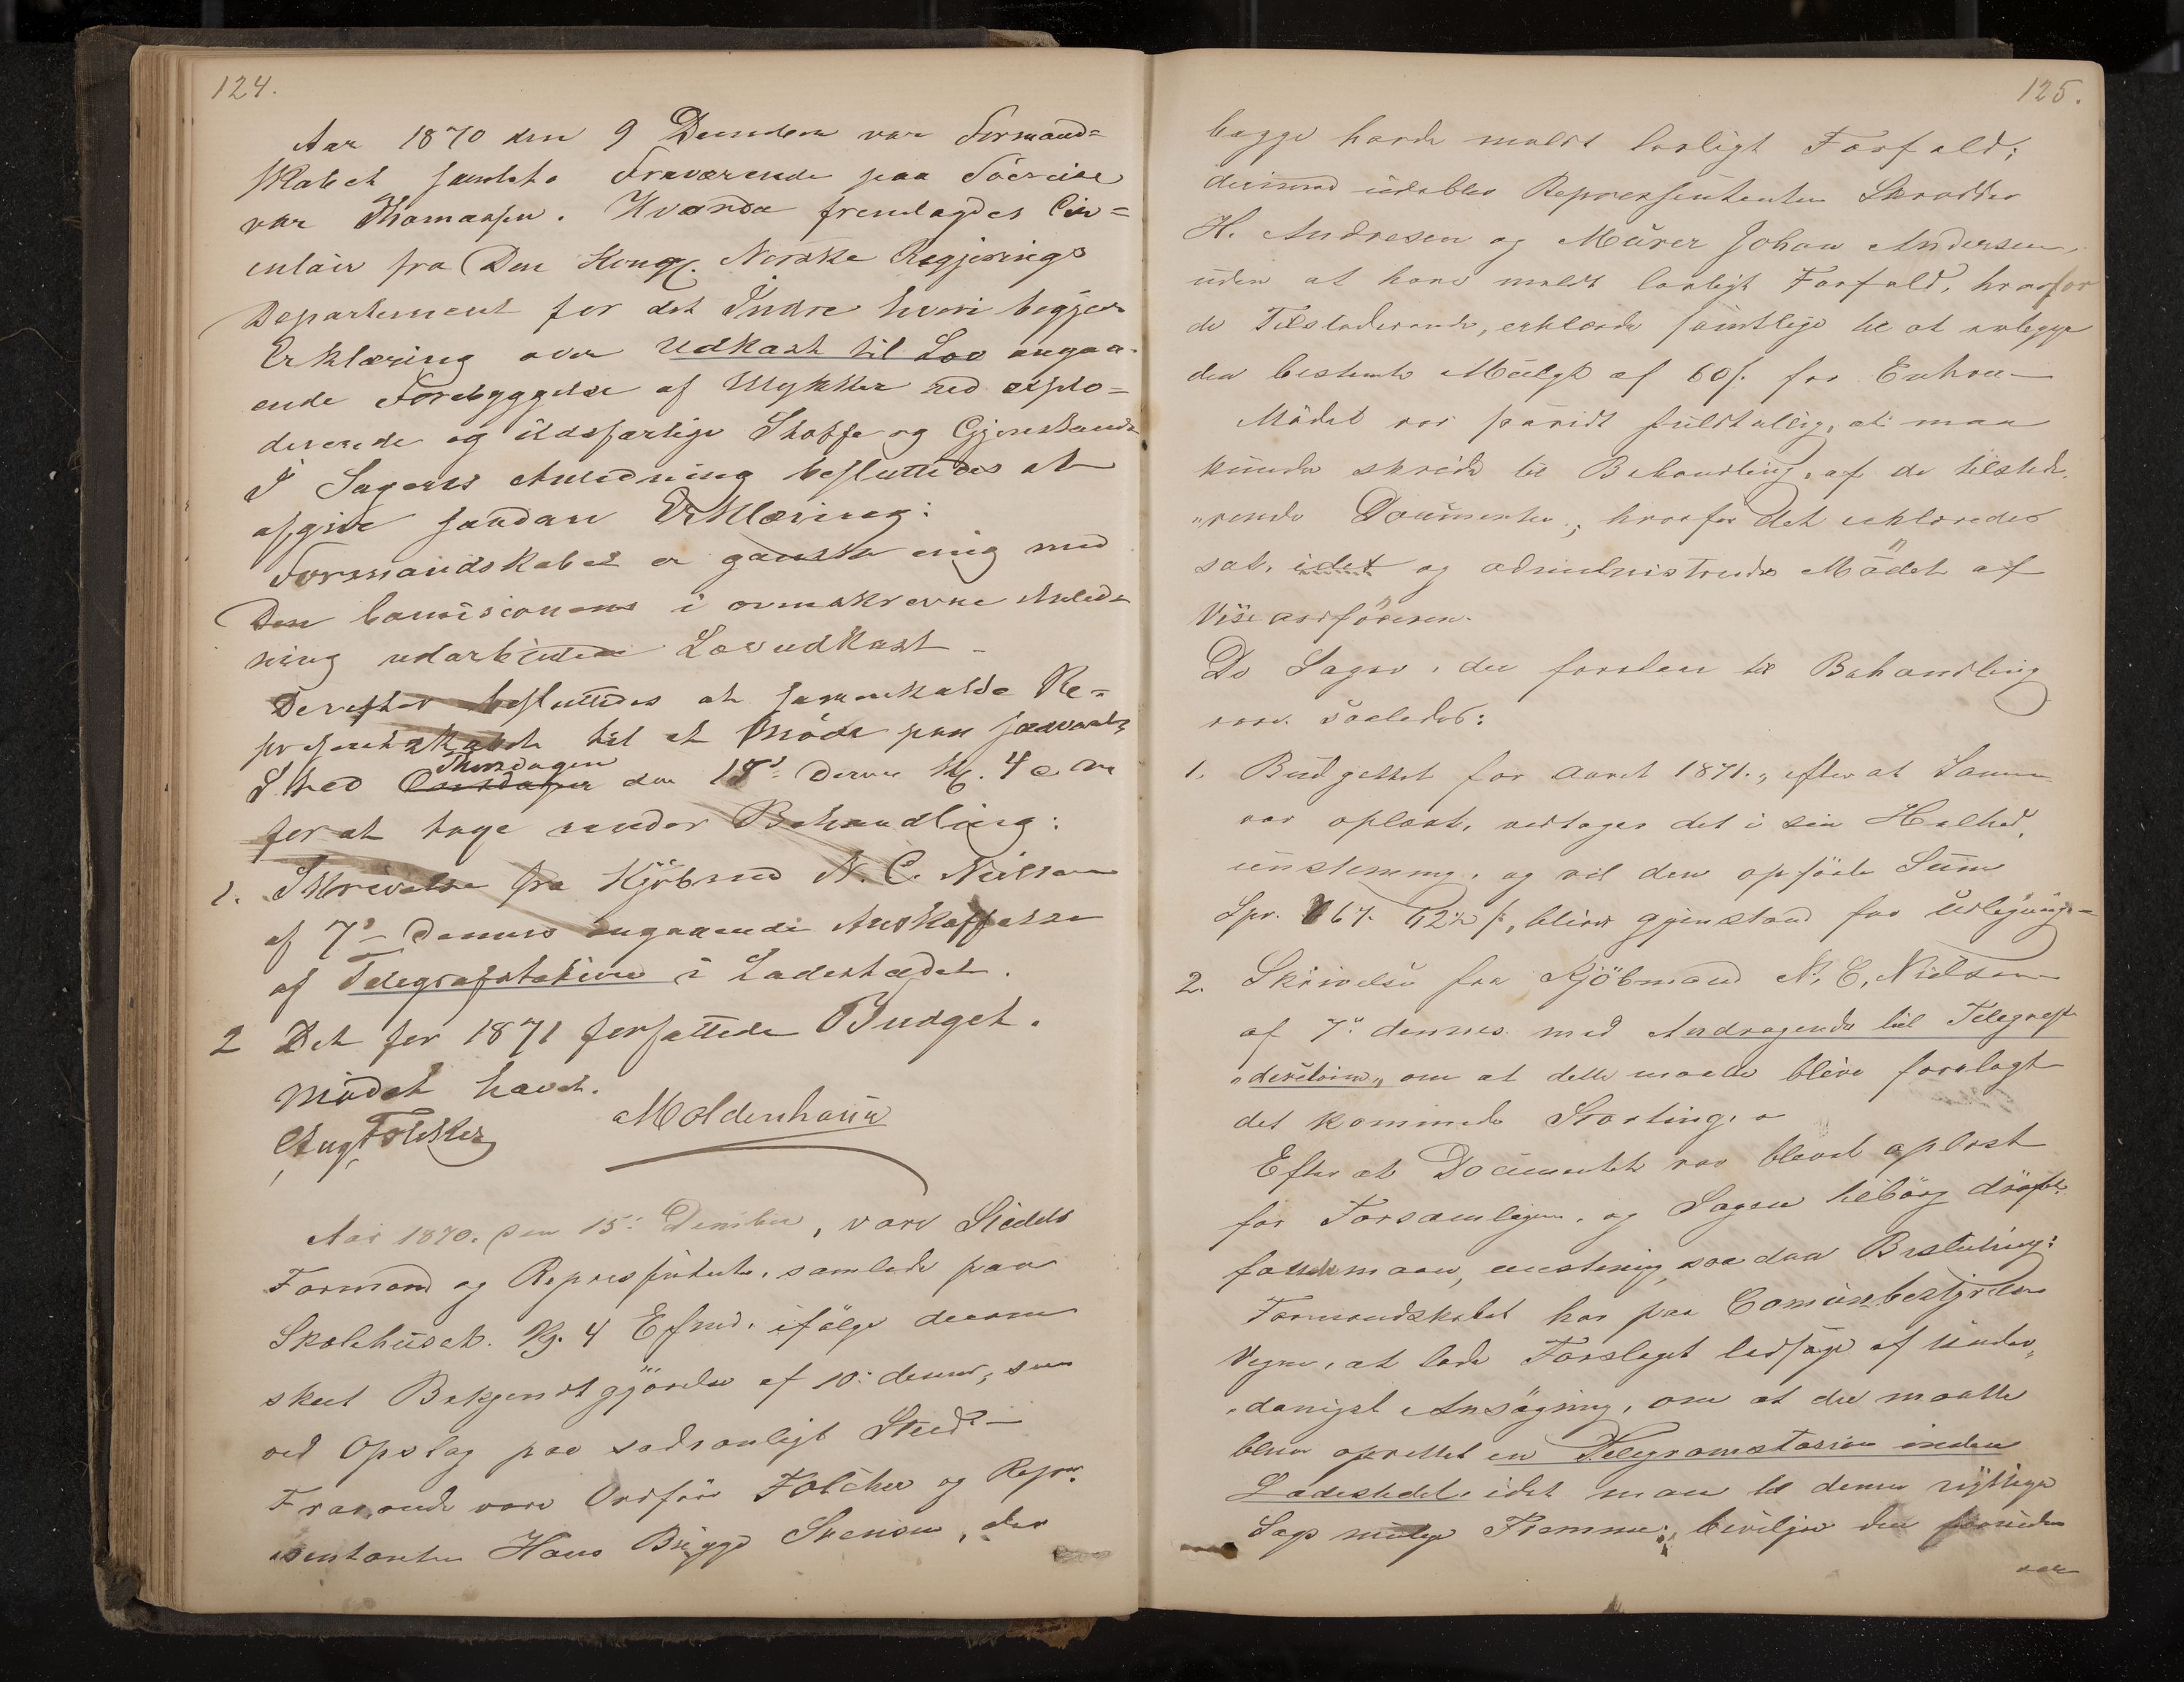 124.
Aar 1870 den 9 December var Formand=
skabet samlet. Fraværende paa Söreise
var Thomassen. Hvorda fremlagdes Cir=
culair fra Den Kongl. Norske Regjerings
Departement for det Indre hvori begjærs
Erklæring over Udkast til Lov angaa-
ende Forebyggelse af Ulykker ved explo=
derende og ildsfarlige Stoffe og Gjenstande
I Sagens Anledning besluttedes at
afgive saadan Erklæring:
Formandskabet er ganske enig med
Den Comisionens i ovenskrevne Anled=
ning udarbeidede Lovudkast -
Derefter besluttedes at sammenkalde Re=
presentskabet til et Möde paa sædvanl.
Sted Onsdagen Thorsdagen den 15' dennes Kl. 4 e M
for at tage under Behandling:
1. Skrivelse fra Kjöbmd N. C. Nielsen
af 7' dennes angaaende Anskaffelse
af Telegrafstation i Ladestedet.
2 Det for 1871 forfattede Budget.
Mödet hævet.
Aug Fölcker Moldenhauer
Aar 1870. den 15' December, vare Stedets
Formænd og Representanter, samlede paa
Skolehuset. Kl. 4 Efmd. ifölge derom
skeet Bekjendtgjörelse af 10' dennes, som
ved Opslag paa sædvanligt Sted. -
Fraværende vare Ordförer Fölcker og Repr.
esentanten Hans Brygge Svensen, der
125.
begge havde meldt lovligt Forfald;
derimod udeblev Representanten Skrædder
H. Andresen og Murer Johan Andersen,
uden at have meldt lovligt Forfald, hvorfor
de Tilstedeværende, erklærede samtlige til at erlægge
den bestemte Mulgt af 60 s. for Enhver -
Mödet var forövrigt fuldtallig, at man
kunde skride til Behandling, af de tilstede-
værende Documenter, hvorfor det erklæredes
sat, idet og administredes Mödet af
Viseordföreren.
De Sager, der forelaa til Behandling
vare saaledes:
1. Budgettet for Aaret 1871., efter at Samme
var oplæst, vedtages det i sin Helhed,
enstemmig, og vil den opförte Sum
Spd. 667. 42½ s, blive gjenstand for Udligning -
2. Skrivelse fra Kjöbmand N. C. Nielsen
af 7' dennes med Andragende til Telegraf-
om at dette maatte blive forelagt
det kommende Storting. -
Efter at Documentet var blevet oplæst
for Forsamlingen, og Sagen tilbörlig dröftet
fattede man, enstemmig saadan Beslutning:
Formandskabet har paa Comunbestyrelsens
Vegne, at lade Forslaget ledsage af under-
danigst Ansögning, om at der maatte
blive oprettet en Telegramstasion inden
Ladestedet, idet man til denne vigtige
Sags mulige Fremme, bevilger den foruden